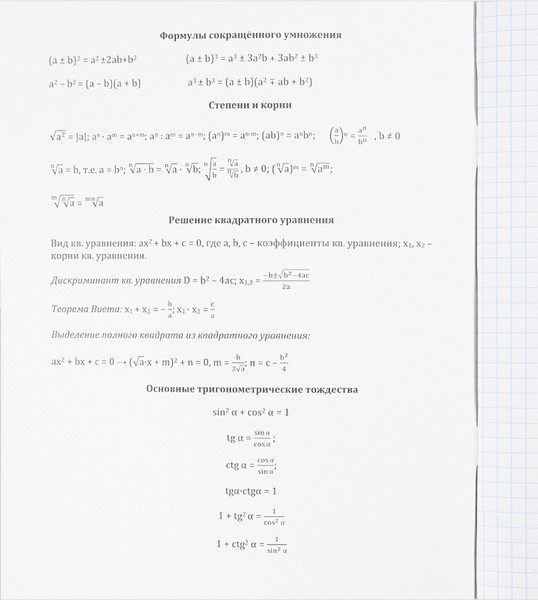 Формулы сокращённого умножения
(a ± b)² = a² ±2ab+b² (a ± b)³ = a³ ± 3a²b + 3ab² ± b³
a² – b² = (a – b)(a + b) a³ ± b³ = (a ± b)(a² ∓ ab + b²)
Степени и корни
√a² = |a|; aⁿ · aᵐ = aⁿ⁺ᵐ; aⁿ : aᵐ = aⁿ⁻ᵐ; (aⁿ)ᵐ = aⁿ·ᵐ; (ab)ⁿ = aⁿbⁿ; (a/b)ⁿ = aⁿ/bⁿ , b ≠ 0
ⁿ√a = b, т.е. a = bⁿ; ⁿ√(a · b) = ⁿ√a · ⁿ√b; ⁿ√(a/b) = ⁿ√a/ⁿ√b, b ≠ 0; (ⁿ√a)ᵐ = ⁿ√aᵐ;
ᵐ√(ⁿ√a) = ᵐⁿ√a
Решение квадратного уравнения
Вид кв. уравнения: ax² + bx + c = 0, где a, b, c – коэффициенты кв. уравнения; x₁, x₂ –
корни кв. уравнения.
Дискриминант кв. уравнения D = b² – 4ac; x₁,₂ = (–b±√(b²–4ac))/2a
Теорема Виета: x₁ + x₂ = – b/a; x₁ · x₂ = c/a
Выделение полного квадрата из квадратного уравнения:
ax² + bx + c = 0 → (√a·x + m)² + n = 0, m = b/(2√a); n = c – b²/4
Основные тригонометрические тождества
sin² α + cos² α = 1
tg α = sin α/cos α;
ctg α = cos α/sin α;
tgα·ctgα = 1
1 + tg² α = 1/cos² α
1 + ctg² α = 1/sin² α